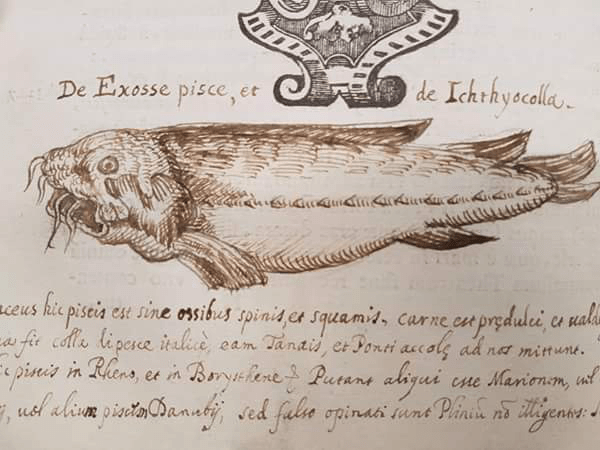 De Exosse pisce, et de Ichthyocolla.
aceus hic piscis est sine ossibus spinis, et squamis, carne est prędulci, et uald
fit colla di pesce italicè, eam Tanais, et Ponti accolę ad nos mittunt.
piscis in Rheno, et in Borysthene Putant aliqui esse Marionem, uel
uel alium piscem Danubij, sed falso opinati sunt Pliniũ nõ itelligentes: